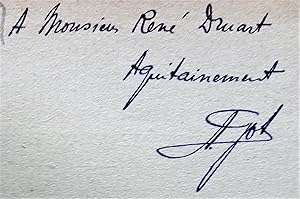 A Monsieur René Druart
Aquitainement